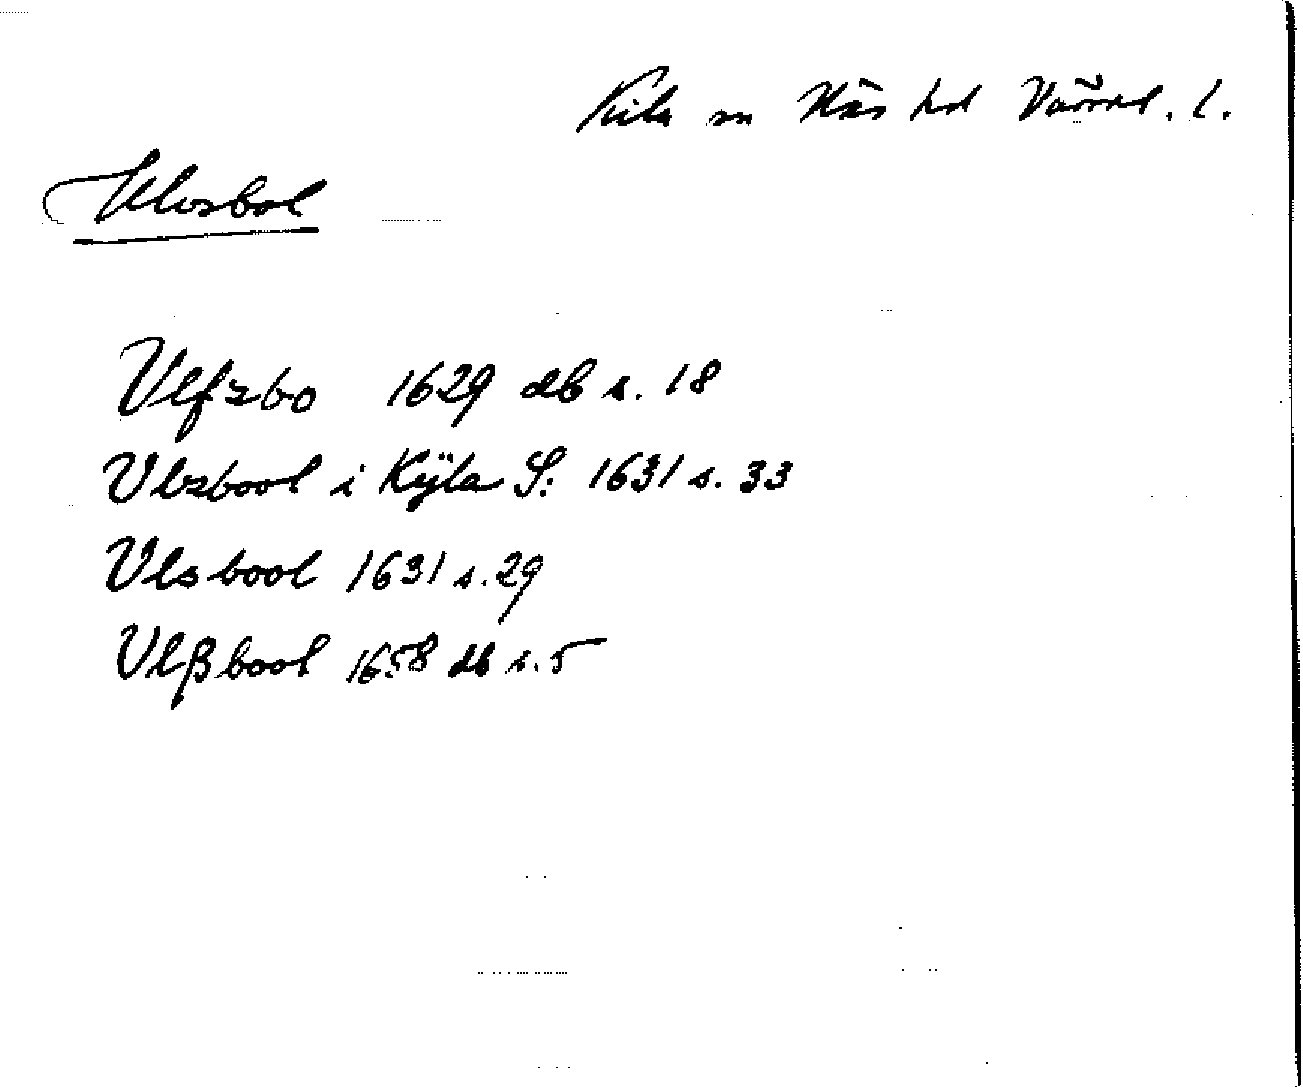 Kila sn Näs hd Värml. l.
Ulvsbol
Vlfzbo 1629 db s. 18
Vlzbool i Kÿla S: 1631 s. 33
Vlsbool 1631 s. 29
Vlßbool 1658 db s. 5